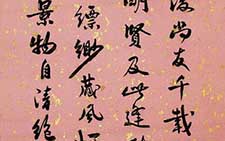 後尚友千載
明賢及此達
縹緲藏風
景物自清絕